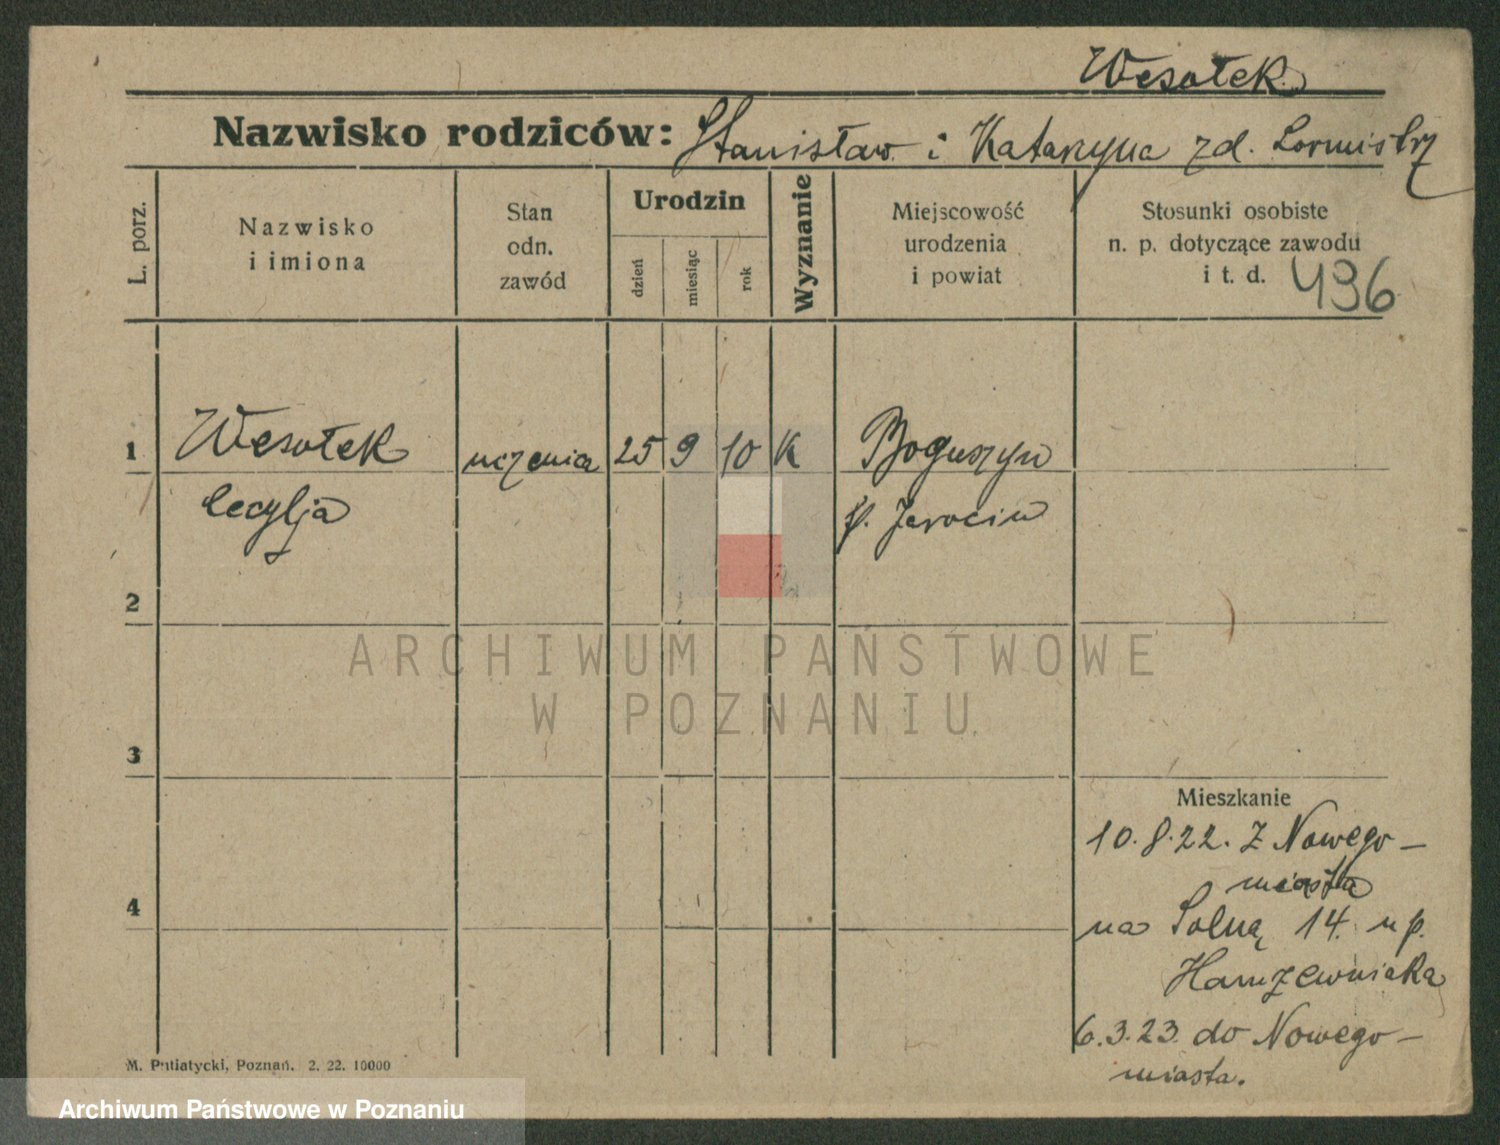 Wesołek
Nazwisko rodziców: Stanisław i Katarzyna zd. Lormistrz
L. porz.
Nazwisko
i imiona
Stan
odn.
zawód
Urodzin
dzień
miesiąc
rok
Wyznanie
Miejscowość
urodzenia
i powiat
Stosunki osobiste
n. p. dotyczące zawodu
i t. d.
496
1 Wesołek uczenica 25 9 10 K Boguszyn
Cecylja p. Jarocin
2
3
4
Mieszkanie
10.8.22. Z Nowego-
miasta
na Solną 14. u p.
6.3.23. do Nowego-
miasta.
M. Putiatycki, Poznań. 2. 22. 10000
ARCHIWUM PAŃSTWOWE
W POZNANIU
Archiwum Państwowe w Poznaniu